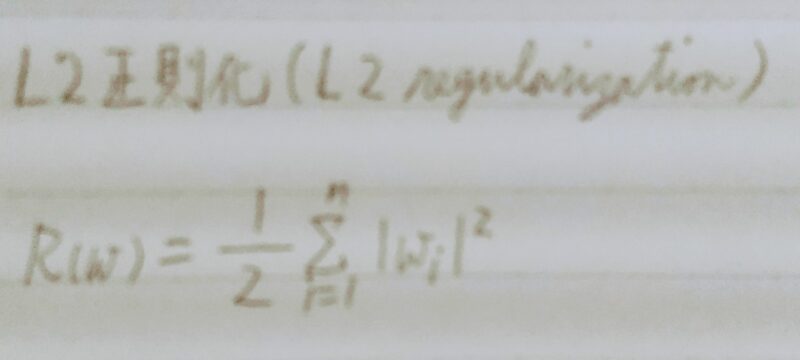 L2正則化(L2 regularization)
R(w) = \frac{1}{2} \sum_{i=1}^{n} |w_i|^2